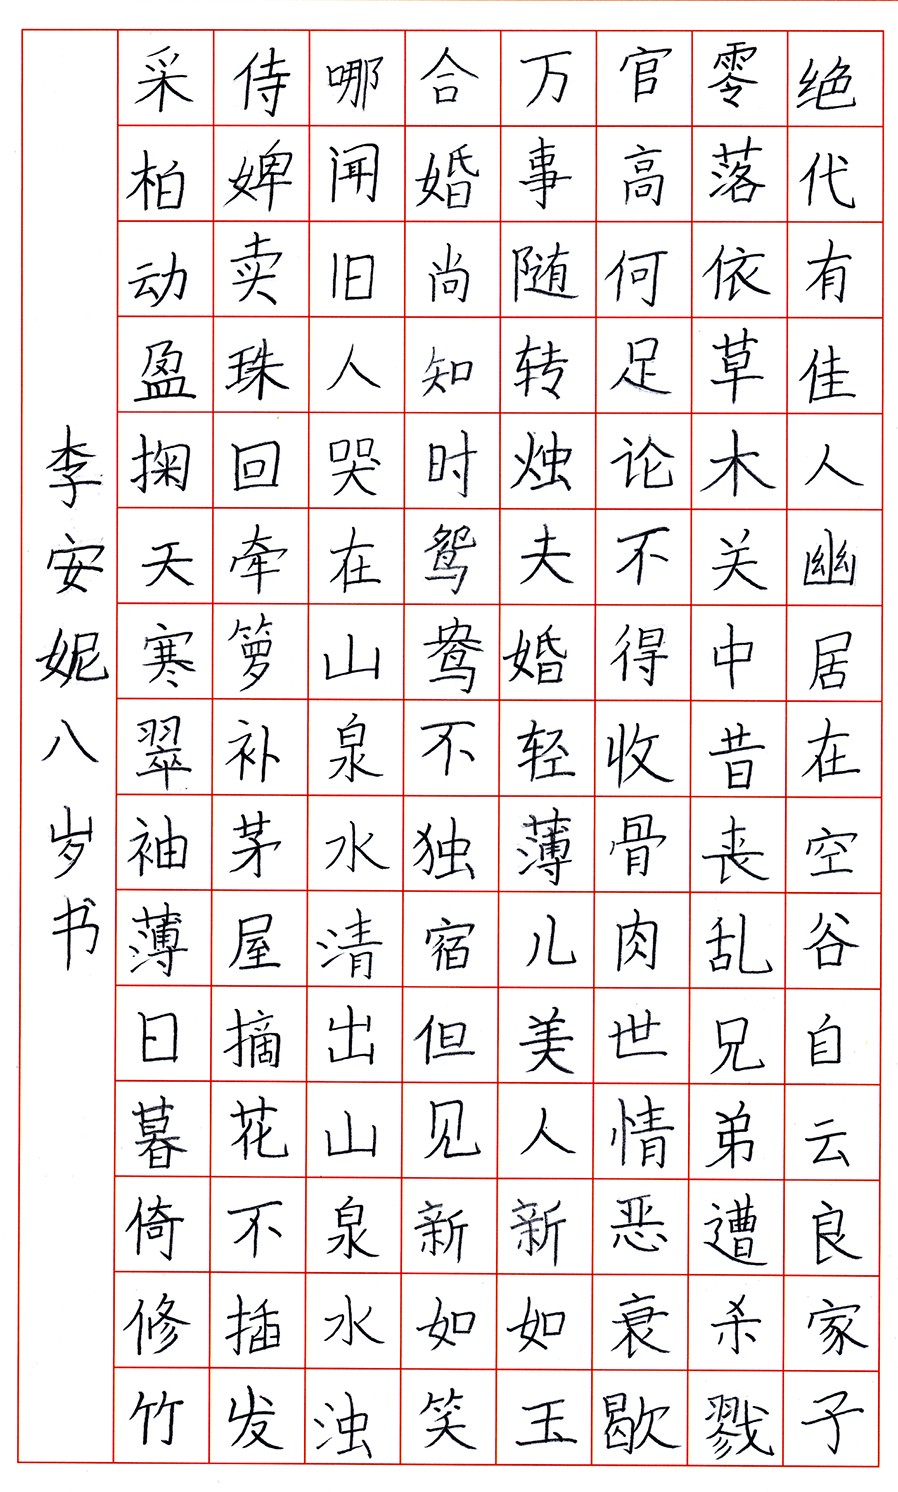 绝代有佳人幽居在空谷自云良家子
零落依草木关中昔丧乱兄弟遭杀戮
官高何足论不得收骨肉世情恶衰歇
万事随转烛夫婿轻薄儿美人新如玉
合婚尚知时鸳鸯不独宿但见新如笑
哪闻旧人哭在山泉水清出山泉水浊
侍婢卖珠回牵箩补茅屋摘花不插发
采柏动盈掬天寒翠袖薄日暮倚修竹
李安妮八岁书